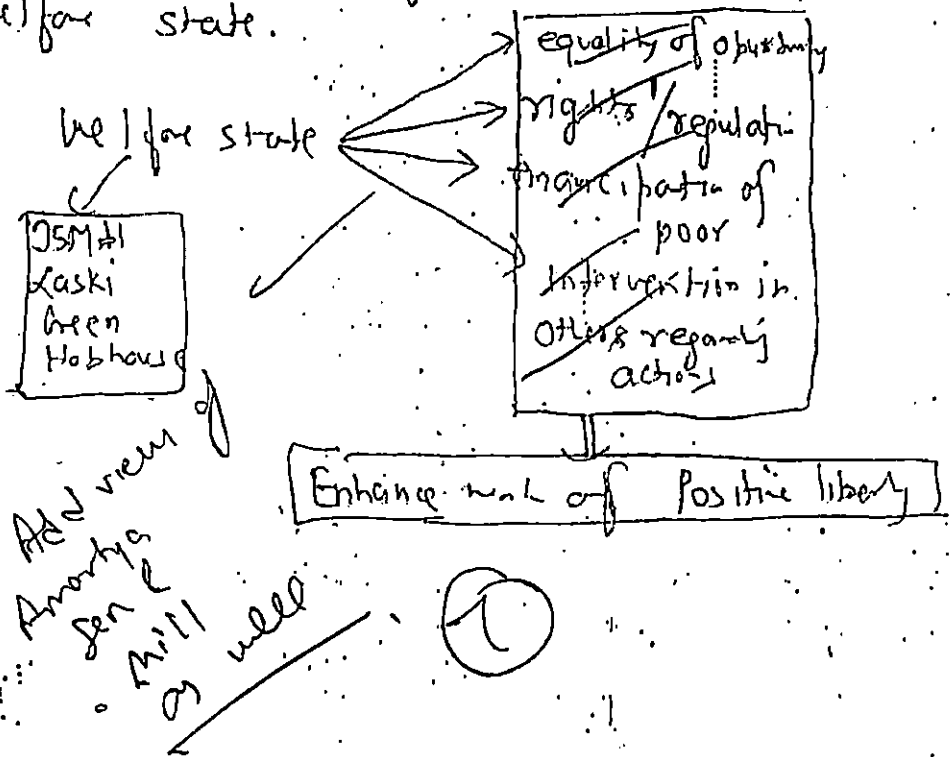 welfare state.
Welfare state
JSMill
Laski
Green
Hobhouse
equality of
rights
regulation
poor
Intervention in
Others regarding
actions
Enhancement of Positive liberty
Add view of
Amartya
Sen &
Mill
as well